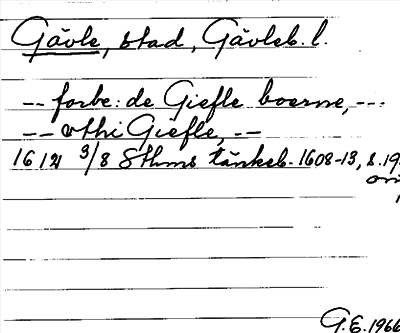 Gävle, stad, Gävleb. l.
-- forbe: de Giefle boerne, ---
-- vthi Giefle, --
1612 3/8 Sthms tänkeb. 1608-13, s. 19
G.E. 1966